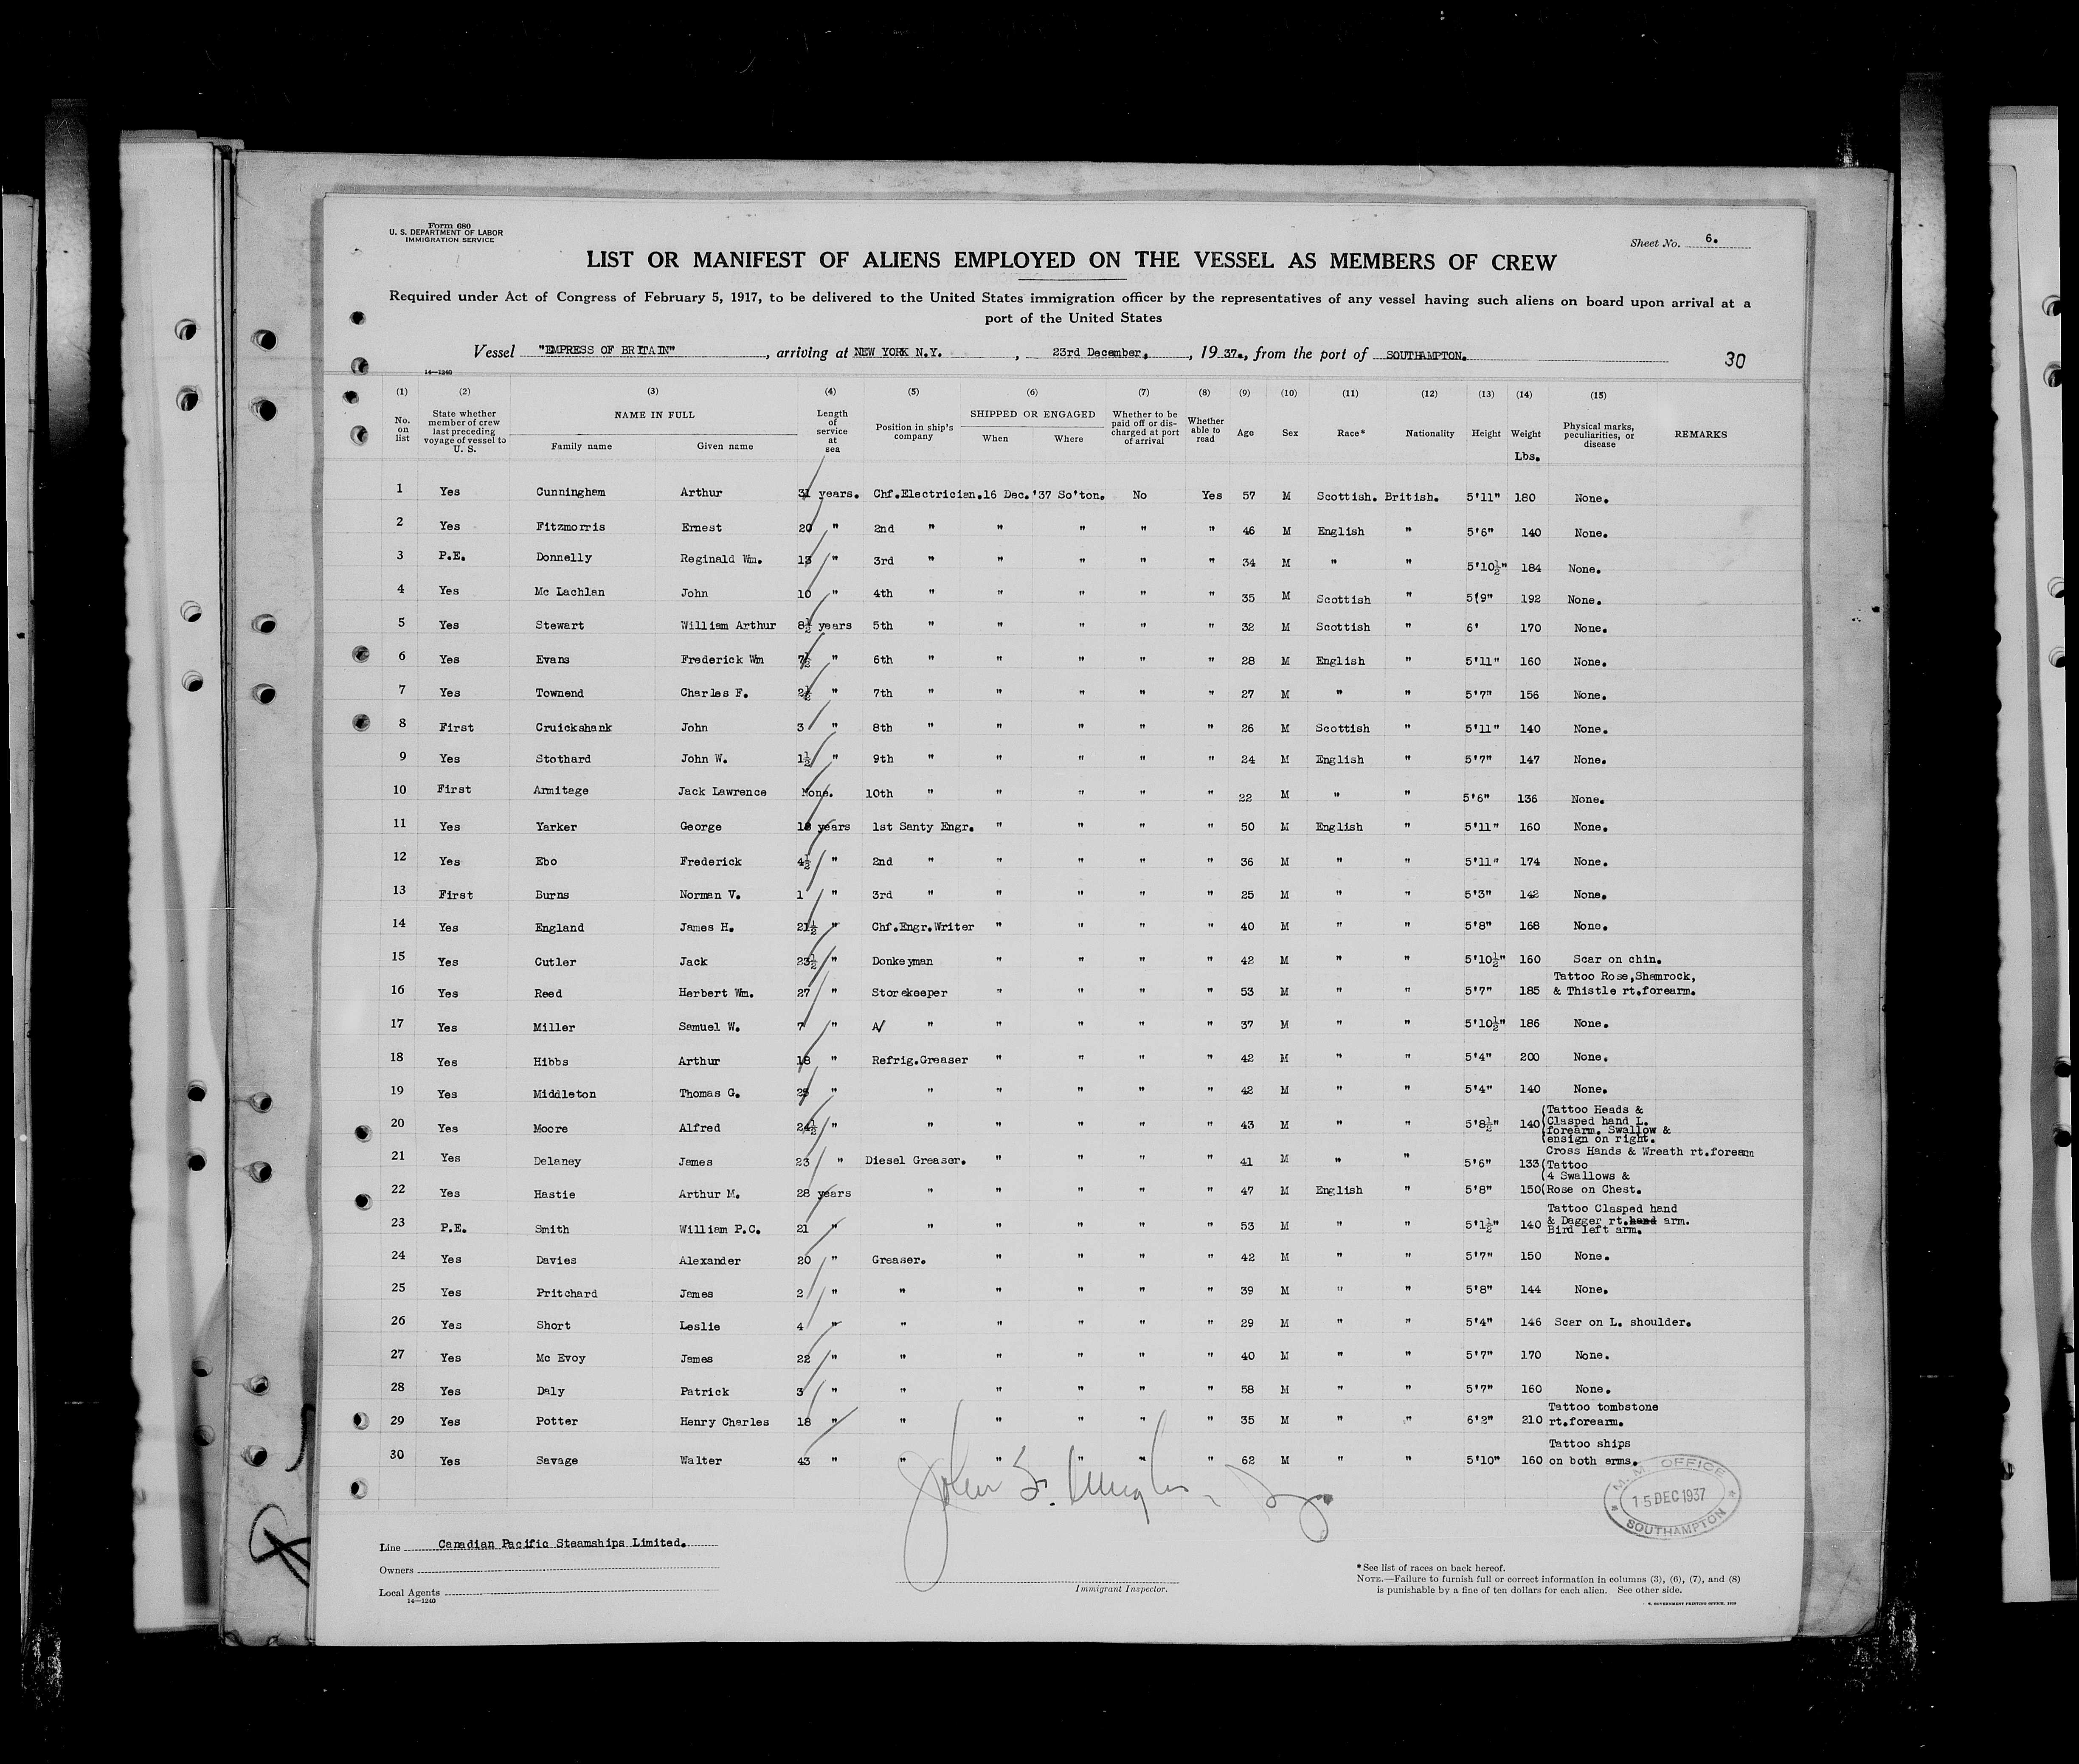 Form 680
U. S. DEPARTMENT OF LABOR
IMMIGRATION SERVICE
Sheet No. 6.
LIST OR MANIFEST OF ALIENS EMPLOYED ON THE VESSEL AS MEMBERS OF CREW
Required under Act of Congress of February 5, 1917, to be delivered to the United States immigration officer by the representatives of any vessel having such aliens on board upon arrival at a
port of the United States
Vessel "EMPRESS OF BRITAIN", arriving at NEW YORK N.Y., 23rd December, 1937., from the port of SOUTHAMPTON.
30
14—1240
(1) (2) (3) (4) (5) (6) (7) (8) (9) (10) (11) (12) (13) (14) (15)
No. on list State whether member of crew last preceding voyage of vessel to U. S. NAME IN FULL Family name Given name Length of service at sea Position in ship's company SHIPPED OR ENGAGED When Where Whether to be paid off or discharged at port of arrival Whether able to read Age Sex Race* Nationality Height Weight Lbs. Physical marks, peculiarities, or disease REMARKS
1 Yes Cunningham Arthur 31 years. Chf.Electrician. 16 Dec.'37 So'ton. No Yes 57 M Scottish. British. 5'11" 180 None.
2 Yes Fitzmorris Ernest 20 " 2nd " " " " " 46 M English " 5'6" 140 None.
3 P.E. Donnelly Reginald Wm. 13 " 3rd " " " " " 34 M " " 5'10½" 184 None.
4 Yes Mc Lachlan John 10 " 4th " " " " " 35 M Scottish " 5(9" 192 None.
5 Yes Stewart William Arthur 8½ years 5th " " " " " 32 M Scottish " 6' 170 None.
6 Yes Evans Frederick Wm 7½ " 6th " " " " " 28 M English " 5'11" 160 None.
7 Yes Townend Charles F. 2½ " 7th " " " " " 27 M " " 5'7" 156 None.
8 First Cruickshank John 3 " 8th " " " " " 26 M Scottish " 5'11" 140 None.
9 Yes Stothard John W. 1½ " 9th " " " " " 24 M English " 5'7" 147 None.
10 First Armitage Jack Lawrence None. 10th " " " " " 22 M " " 5'6" 136 None.
11 Yes Yarker George years 1st Santy Engr. " " " " 50 M English " 5'11" 160 None.
12 Yes Ebo Frederick 4½ " 2nd " " " " " 36 M " " 5'11" 174 None.
13 First Burns Norman V. 1 " 3rd " " " " " 25 M " " 5'3" 142 None.
14 Yes England James H. 21½ " Chf.Engr.Writer " " " " 40 M " " 5'8" 168 None.
15 Yes Cutler Jack 23½ " Donkeyman " " " " 42 M " " 5'10½" 160 Scar on chin.
16 Yes Reed Herbert Wm. 27 " Storekeeper " " " " 53 M " " 5'7" 185 Tattoo Rose,Shamrock,
& Thistle rt.forearm.
17 Yes Miller Samuel W. 7 " A/ " " " " " 37 M " " 5'10½" 186 None.
18 Yes Hibbs Arthur 18 " Refrig.Greaser " " " " 42 M " " 5'4" 200 None.
19 Yes Middleton Thomas G. " " " " " " 42 M " " 5'4" 140 None.
20 Yes Moore Alfred 24½ " " " " " 43 M " " 5'8½" 140 (Tattoo Heads &
(Clasped hand L.
(forearm. Swallow &
(ensign on right.
21 Yes Delaney James 23 " Diesel Greaser. " " " " 41 M " " 5'6" 133 Cross Hands & Wreath rt.foream
(Tattoo
22 Yes Hastie Arthur M. 28 years " " " " " 47 M English " 5'8" 150 (4 Swallows &
(Rose on Chest.
23 P.E. Smith William P.C. 21 " " " " " " 53 M " " 5'1½" 140 Tattoo Clasped hand
& Dagger rt.hand arm.
Bird left arm.
24 Yes Davies Alexander 20 " Greaser. " " " " 42 M " " 5'7" 150 None.
25 Yes Pritchard James 2 " " " " " " 39 M " " 5'8" 144 None.
26 Yes Short Leslie 4 " " " " " " 29 M " " 5'4" 146 Scar on L. shoulder.
27 Yes Mc Evoy James 22 " " " " " " 40 M " " 5'7" 170 None.
28 Yes Daly Patrick 3 " " " " " " 58 M " " 5'7" 160 None.
29 Yes Potter Henry Charles 18 " " " " " " 35 M " " 6'2" 210 Tattoo tombstone
rt.forearm.
30 Yes Savage Walter 43 " " " " " " 62 M " " 5'10" 160 Tattoo ships
on both arms.
M. M. OFFICE
15 DEC 1937
SOUTHAMPTON
Line Canadian Pacific Steamships Limited.
Owners
Local Agents
14—1240
John
Immigrant Inspector.
*See list of races on back hereof.
NOTE.—Failure to furnish full or correct information in columns (3), (6), (7), and (8)
is punishable by a fine of ten dollars for each alien. See other side.
GOVERNMENT PRINTING OFFICE